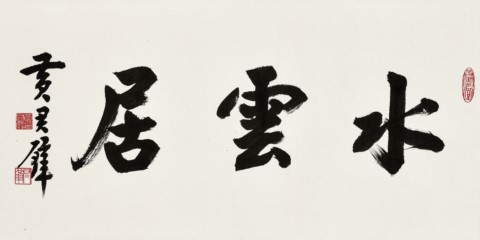 水雲居
黃君璧